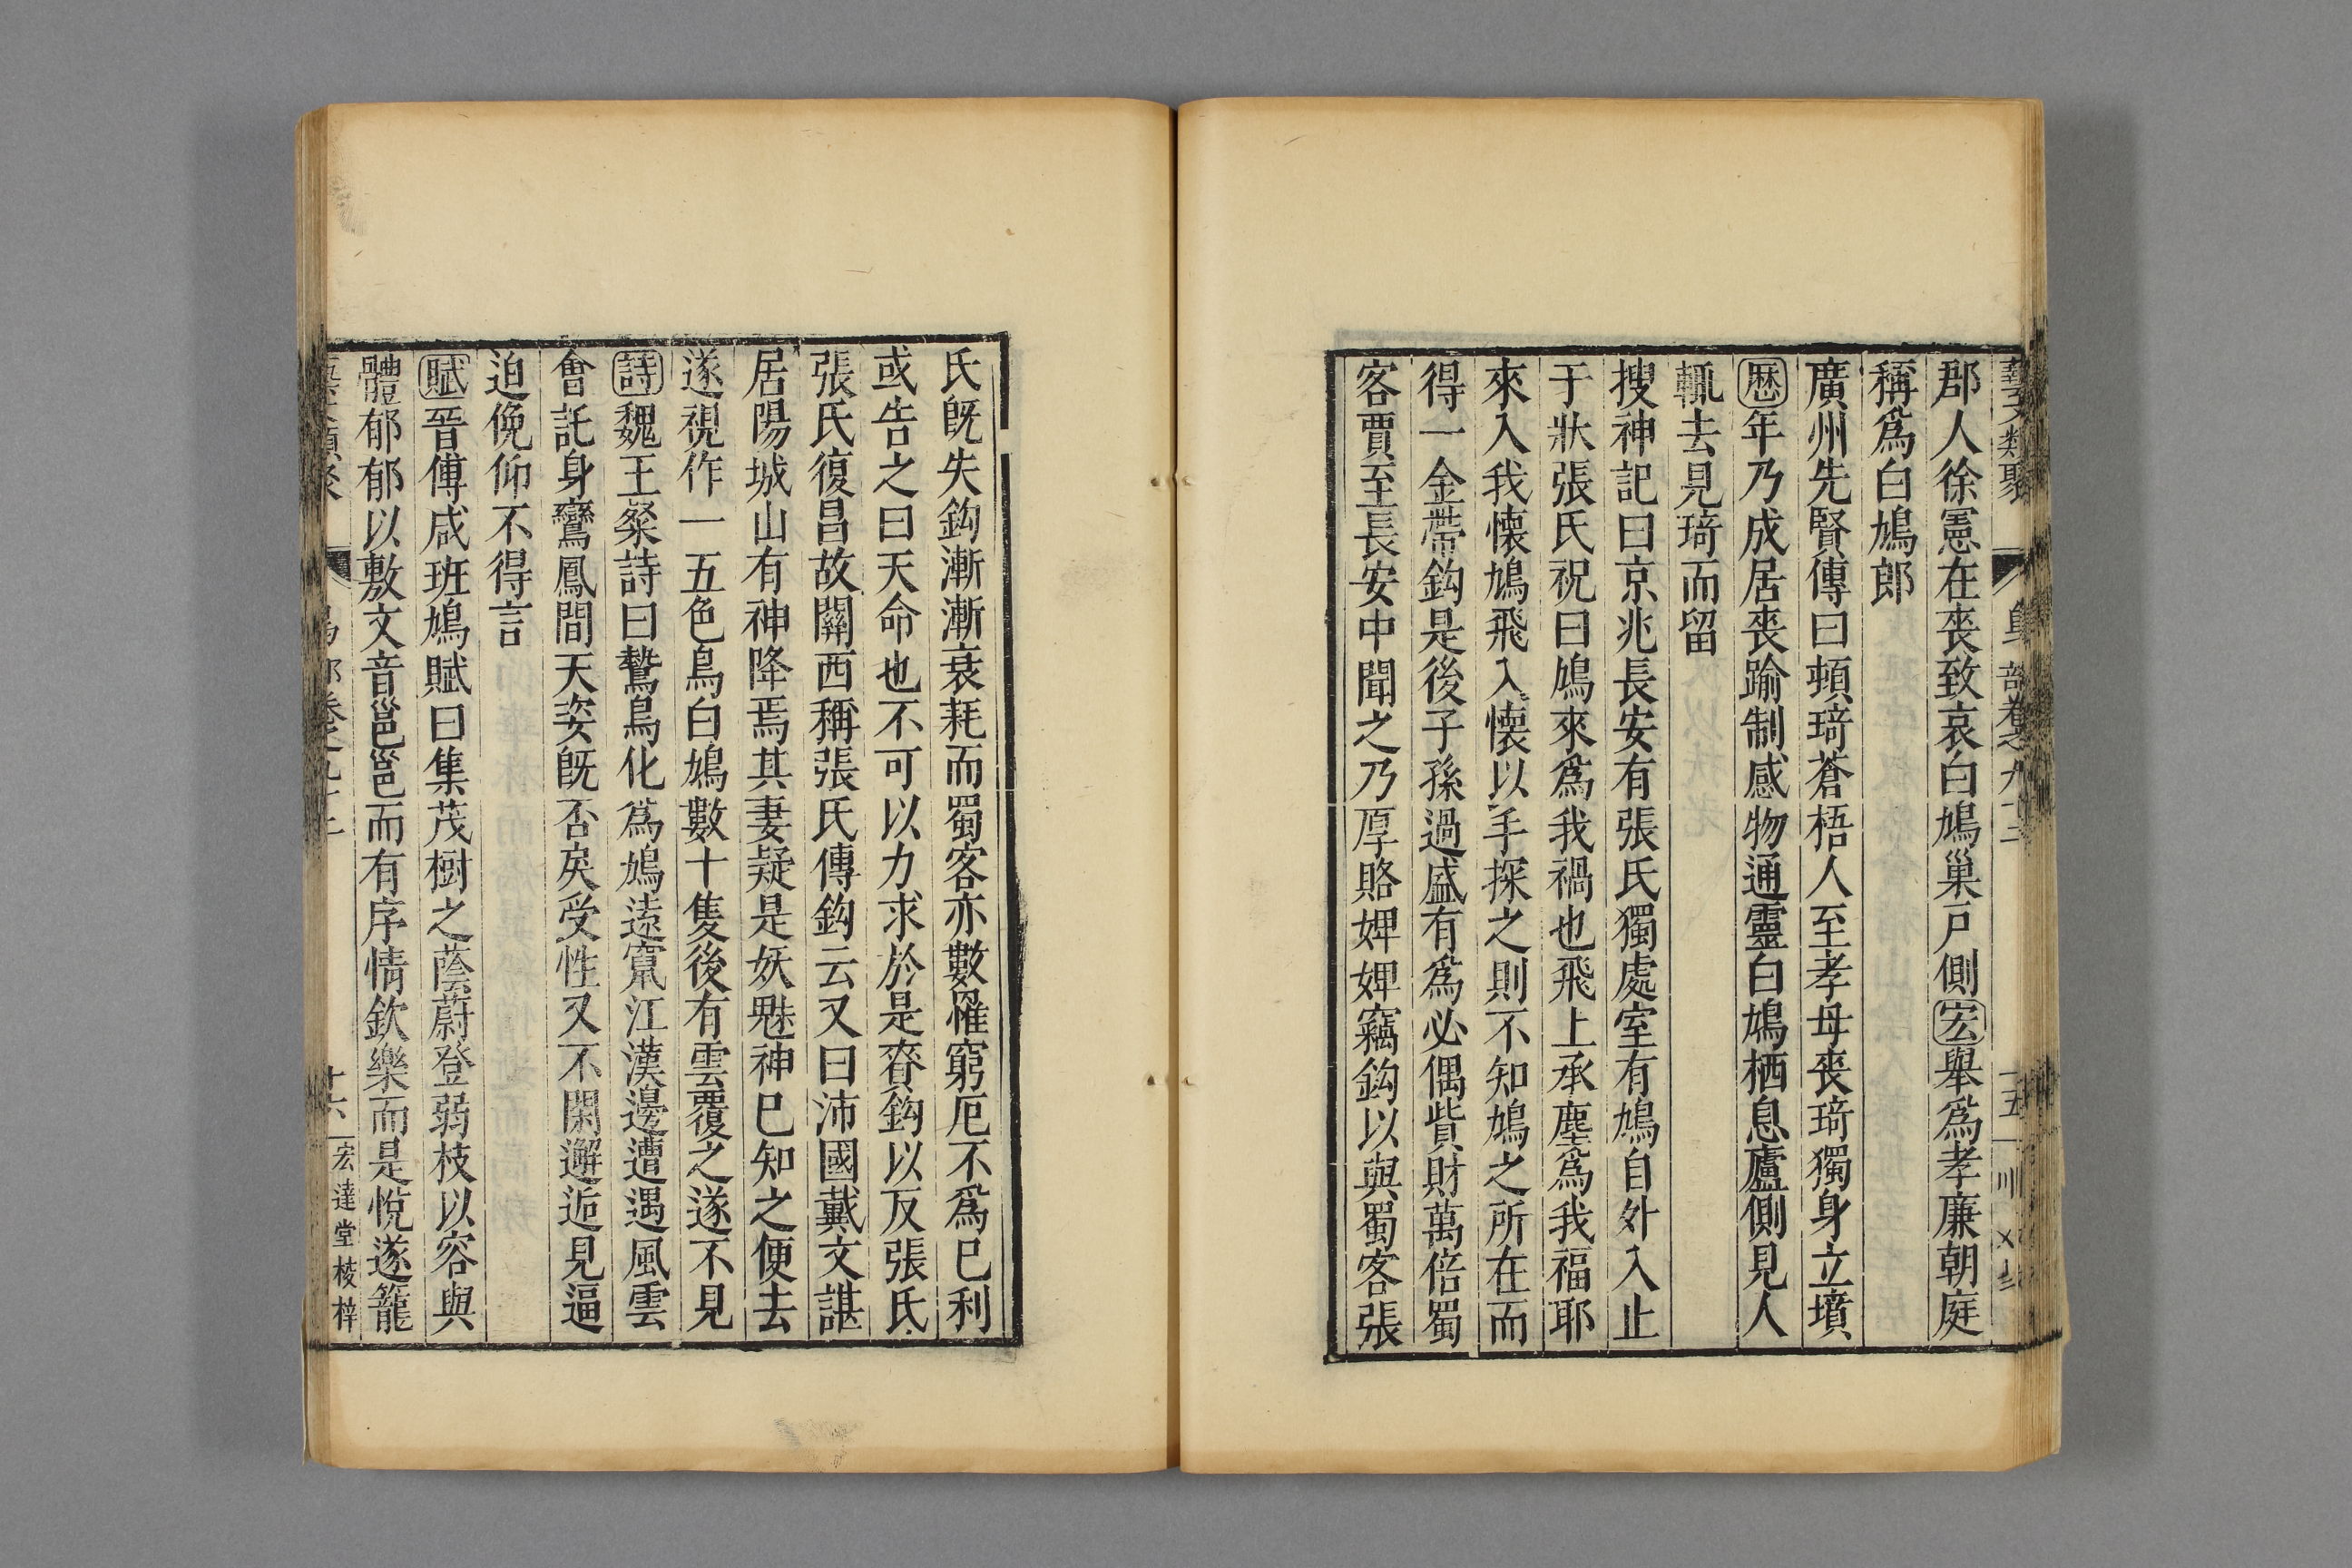 藝文類聚 鳥部卷之九十二 十五
郡人徐憲在喪致哀白鳩巢戸側宏舉爲孝廉朝庭
稱爲白鳩郎
廣州先賢傳曰頓琦蒼梧人至孝母喪琦獨身立墳
歷年乃成居喪踰制感物通靈白鳩栖息廬側見人
輒去見琦而留
搜神記曰京兆長安有張氏獨處室有鳩自外入止
于牀張氏祝曰鳩來爲我禍也飛上承塵爲我福耶
來入我懷鳩飛入懷以手探之則不知鳩之所在而
得一金帶鈎是後子孫過盛有爲必偶貲財萬倍蜀
客賈至長安中聞之乃厚賂婢婢竊鈎以與蜀客張
氏旣失鈎漸漸衰耗而蜀客亦數罹窮厄不爲已利
或告之曰天命也不可以力求於是賫鈎以反張氏
張氏復昌故關西稱張氏傳鈎云又曰沛國戴文諶
居陽城山有神降焉其妻疑是妖魅神已知之便去
遂視作一五色鳥白鳩數十隻後有雲覆之遂不見
詩魏王粲詩曰鷙鳥化爲鳩遠竄江漢邊遭遇風雲
會託身鸞鳳間天姿旣否戾受性又不閑邂逅見逼
迫俛仰不得言
賦晉傅咸班鳩賦曰集茂樹之蔭蔚登弱枝以容與
體郁郁以敷文音邕邕而有序情欽樂而是悅遂籠
藝文類聚 鳥部卷之九十二 十六 宏達堂棱梓